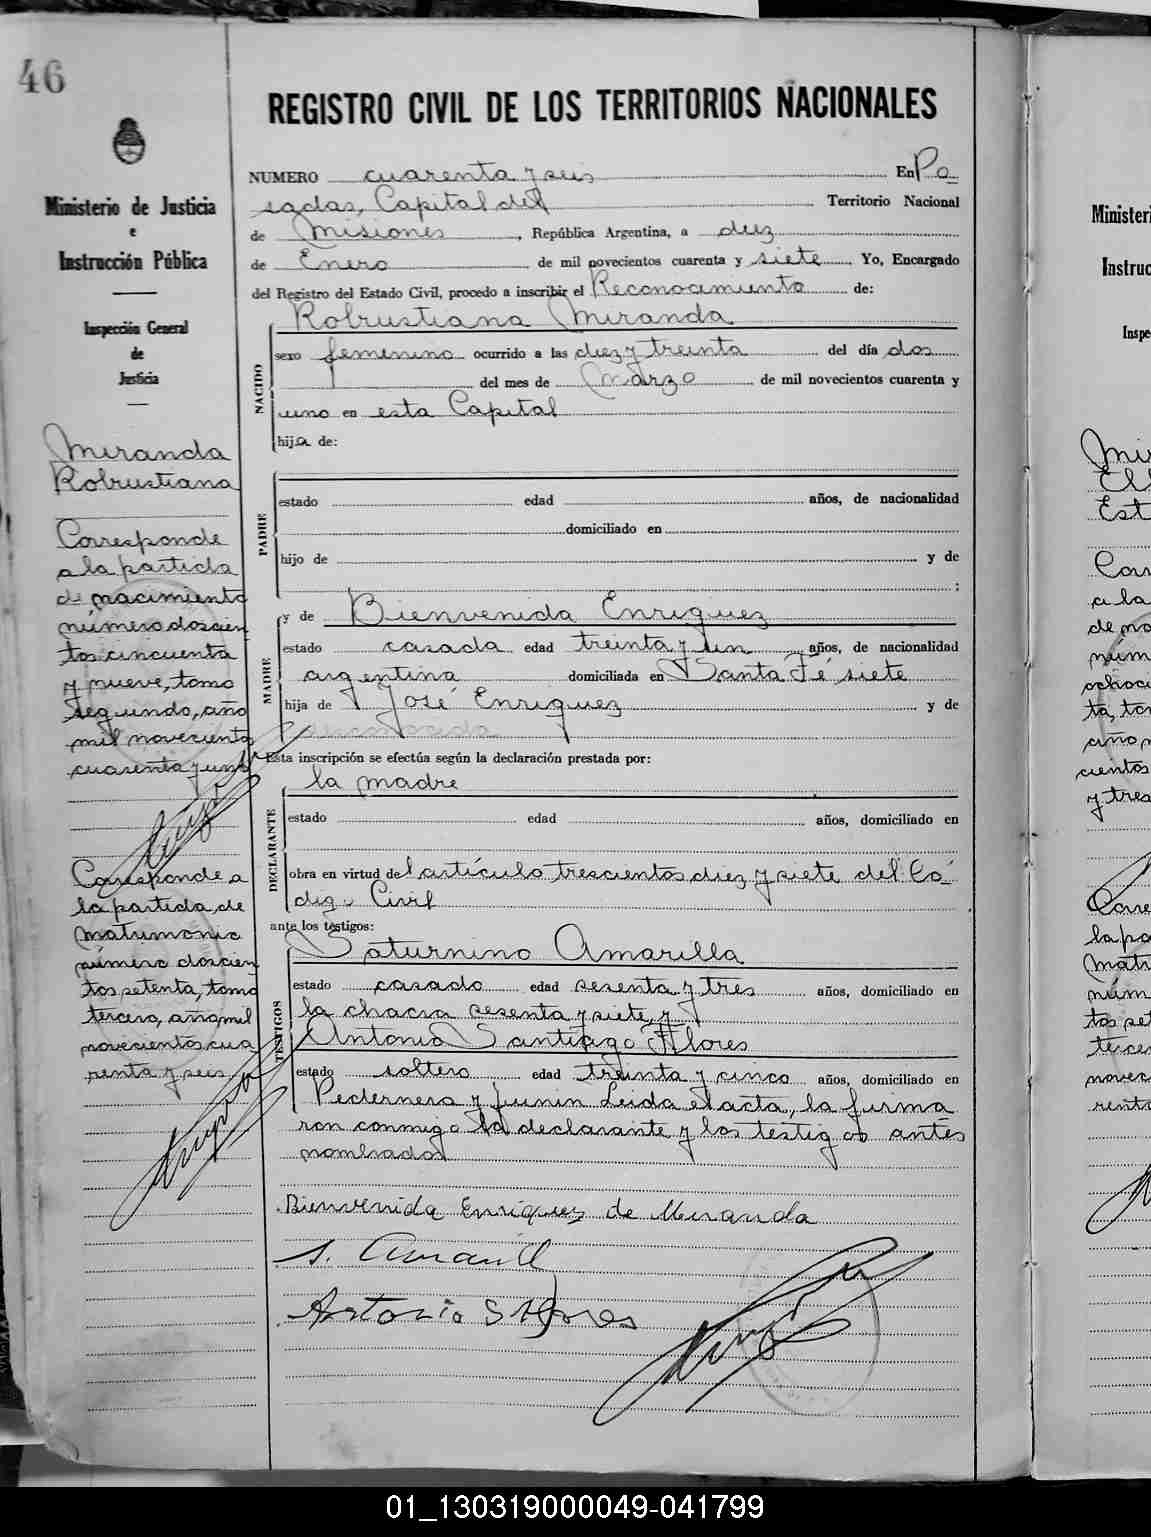 46
REGISTRO CIVIL DE LOS TERRITORIOS NACIONALES
Ministerio de Justicia
e
Instrucción Pública
Inspección General
de
Justicia
Miranda
Robustiana
Corresponde
a la partida
de nacimiento
número doscien
tos cincuenta
y nueve, tomo
segundo, año
mil novecientos
cuarenta y uno
Corresponde a
la partida de
matrimonio
número doscien
tos setenta, tomo
tercero, año mil
novecientos cua
renta y seis
NUMERO cuarenta y seis En Po
sadas, Capital del Territorio Nacional
de Misiones, República Argentina, a diez
de Enero de mil novecientos cuarenta y siete. Yo, Encargado
del Registro del Estado Civil, procedo a inscribir el Reconocimiento de:
NACIDO
Robustiana Miranda
sexo femenino ocurrido a las diez y treinta del día dos
del mes de Marzo de mil novecientos cuarenta y
uno en esta Capital
hija de:
PADRE
estado edad años, de nacionalidad
domiciliado en
hijo de y de
;
MADRE
y de Bienvenida Enriquez
estado casada edad treinta y un años, de nacionalidad
argentina domiciliada en Santa Fé siete
hija de José Enriquez y de
Esta inscripción se efectúa según la declaración prestada por:
DECLARANTE
la madre
estado edad años, domiciliado en
obra en virtud del artículo trescientos diez y siete del Có-
digo Civil
ante los testigos:
TESTIGOS
Saturnino Amarilla
estado casado edad sesenta y tres años, domiciliado en
la chacra sesenta y siete, y
Antonio Santiago Flores
estado soltero edad treinta y cinco años, domiciliado en
Pedernera y Junin Leida el acta, la firma
ron conmigo la declarante y los testigos antes
nombrados
Bienvenida Enriquez de Miranda
S. Amarill
Antonio S Flores
Minister
Instruc
Inspe
Mi
El
Est
Corr
a la
de na
núm
ochoci
ta, to
año
cientos
y tres
Corre
la pa
matr
núm
tos set
terce
novec
renta
01_130319000049-041799